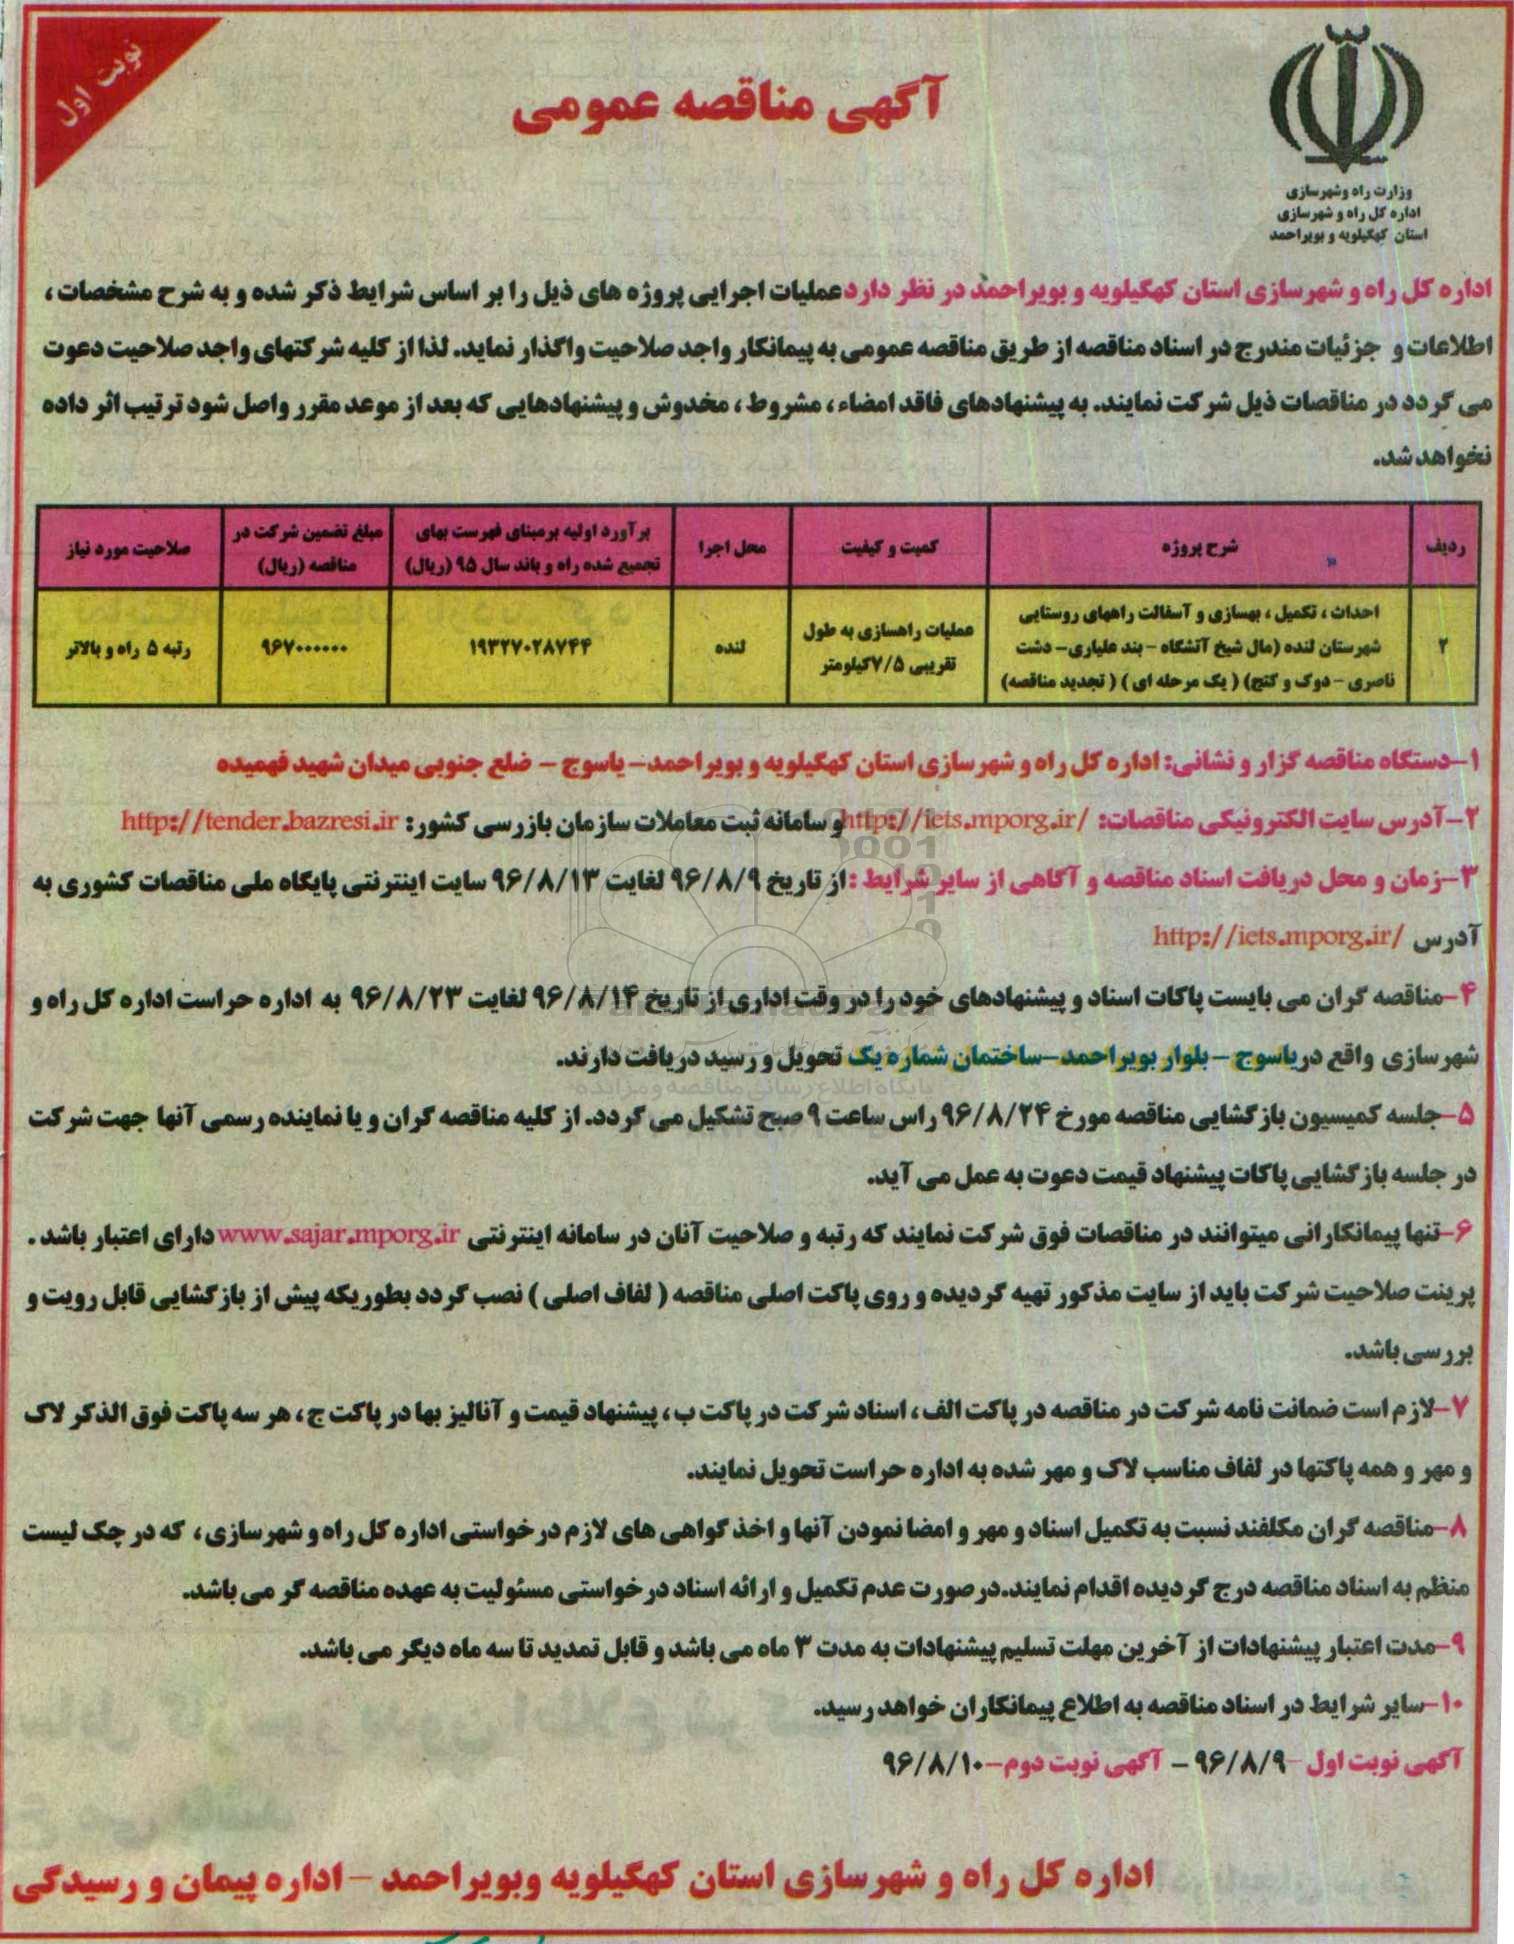 نوبت اول
آگهی مناقصه عمومی
وزارت راه وشهرسازی
اداره کل راه و شهرسازی
استان کهگیلویه و بویراحمد
اداره کل راه و شهرسازی استان کهگیلویه و بویراحمد در نظر دارد عملیات اجرایی پروژه های ذیل را بر اساس شرایط ذکر شده و به شرح مشخصات ،
اطلاعات و جزئیات مندرج در اسناد مناقصه از طریق مناقصه عمومی به پیمانکار واجد صلاحیت واگذار نماید. لذا از کلیه شرکتهای واجد صلاحیت دعوت
می گردد در مناقصات ذیل شرکت نمایند. به پیشنهادهای فاقد امضاء ، مشروط ، مخدوش و پیشنهادهایی که بعد از موعد مقرر واصل شود ترتیب اثر داده
نخواهد شد.
ردیف
شرح پروژه
کمیت و کیفیت
محل اجرا
برآورد اولیه برمبنای فهرست بهای
تجمیع شده راه و باند سال ۹۵ (ریال)
مبلغ تضمین شرکت در
مناقصه (ریال)
صلاحیت مورد نیاز
۲
احداث ، تکمیل ، بهسازی و آسفالت راههای روستایی
شهرستان لنده (مال شیخ آتشگاه - بند علیاری- دشت
ناصری - دوک و کتج) ( یک مرحله ای ) ( تجدید مناقصه)
عملیات راهسازی به طول
تقریبی ۷/۵کیلومتر
لنده
۱۹۳۲۷۰۲۸۷۴۴
۹۶۷۰۰۰۰۰۰
رتبه ۵ راه و بالاتر
۱-دستگاه مناقصه گزار و نشانی: اداره کل راه و شهرسازی استان کهگیلویه و بویراحمد- یاسوج - ضلع جنوبی میدان شهید فهمیده
۲-آدرس سایت الکترونیکی مناقصات: http://iets.mporg.ir/ و سامانه ثبت معاملات سازمان بازرسی کشور: http://tender.bazresi.ir
۳-زمان و محل دریافت اسناد مناقصه و آگاهی از سایر شرایط : از تاریخ ۹۶/۸/۹ لغایت ۹۶/۸/۱۳ سایت اینترنتی پایگاه ملی مناقصات کشوری به
آدرس http://iets.mporg.ir/
۴-مناقصه گران می بایست پاکات اسناد و پیشنهادهای خود را در وقت اداری از تاریخ ۹۶/۸/۱۴ لغایت ۹۶/۸/۲۳ به اداره حراست اداره کل راه و
شهرسازی واقع در یاسوج - بلوار بویراحمد -ساختمان شماره یک تحویل و رسید دریافت دارند.
پایگاه اطلاع رسانی مناقصه و مزایده
۵-جلسه کمیسیون بازگشایی مناقصه مورخ ۹۶/۸/۲۴ راس ساعت ۹ صبح تشکیل می گردد. از کلیه مناقصه گران و یا نماینده رسمی آنها جهت شرکت
در جلسه بازگشایی پاکات پیشنهاد قیمت دعوت به عمل می آید.
۶-تنها پیمانکارانی میتوانند در مناقصات فوق شرکت نمایند که رتبه و صلاحیت آنان در سامانه اینترنتی www.sajar.mporg.ir دارای اعتبار باشد .
پرینت صلاحیت شرکت باید از سایت مذکور تهیه گردیده و روی پاکت اصلی مناقصه ( لفاف اصلی ) نصب گردد بطوریکه پیش از بازگشایی قابل رویت و
بررسی باشد.
۷-لازم است ضمانت نامه شرکت در مناقصه در پاکت الف ، اسناد شرکت در پاکت ب ، پیشنهاد قیمت و آنالیز بها در پاکت ج ، هر سه پاکت فوق الذکر لاک
و مهر و همه پاکتها در لفاف مناسب لاک و مهر شده به اداره حراست تحویل نمایند.
۸-مناقصه گران مکلفند نسبت به تکمیل اسناد و مهر و امضا نمودن آنها و اخذ گواهی های لازم درخواستی اداره کل راه و شهرسازی ، که در چک لیست
منظم به اسناد مناقصه درج گردیده اقدام نمایند.در صورت عدم تکمیل و ارائه اسناد درخواستی مسئولیت به عهده مناقصه گر می باشد.
۹-مدت اعتبار پیشنهادات از آخرین مهلت تسلیم پیشنهادات به مدت ۳ ماه می باشد و قابل تمدید تا سه ماه دیگر می باشد.
۱۰-سایر شرایط در اسناد مناقصه به اطلاع پیمانکاران خواهد رسید.
آگهی نوبت اول -۹۶/۸/۹ - آگهی نوبت دوم-۹۶/۸/۱۰
اداره کل راه و شهرسازی استان کهگیلویه وبویراحمد - اداره پیمان و رسیدگی